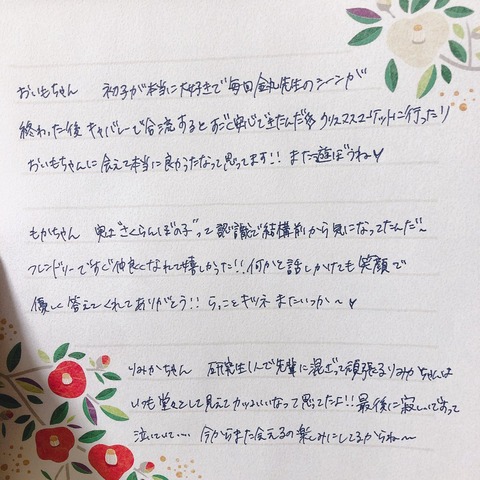 おいもちゃん 初子が本当に大好きで毎回金丸先生のシーンが
終わった後キャバレーで合流するとすごく安心できたんだ クリスマスマーケットに行ったり
おいもちゃんに会えて本当に良かったなって思ってます!! また遊ぼうね♥
もかちゃん 実は"さくらんぼの子"って認識で結構前から気になってたんだ〜
フレンドリーですぐ仲良くなれて嬉しかった!! 何かと話しかけても笑顔で
優しく答えてくれてありがとう!! らっことキツネ またいつか〜♥
りみかちゃん 研究生1人で先輩に混ざって頑張るりみかちゃんは
いつも堂々として見えてカッコいいなって思ってたよ!! 最後に寂しいですって
泣いていて… 今からまた会えるの楽しみにしてるからね〜